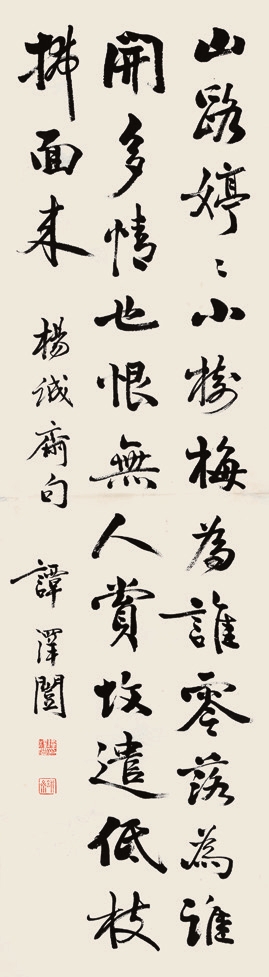 山路婷〻小樹梅為誰零落為誰
開多情也恨無人賞故遣低枝
拂面来
楊誠齋句
譚澤闓